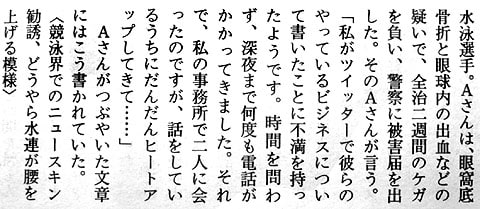 水泳選手。Aさんは、眼窩底
骨折と眼球内の出血などの
疑いで、全治二週間のケガ
を負い、警察に被害届を出
した。そのAさんが言う。
「私がツイッターで彼らの
やっているビジネスについ
て書いたことに不満を持っ
たようです。時間を問わ
ず、深夜まで何度も電話が
かかってきました。それ
で、私の事務所で二人に会
ったのですが、話をしてい
るうちにだんだんヒートア
ップしてきて……」
Aさんがつぶやいた文章
にはこう書かれていた。
〈競泳界でのニュースキン
勧誘、どうやら水連が腰を
上げる模様〉